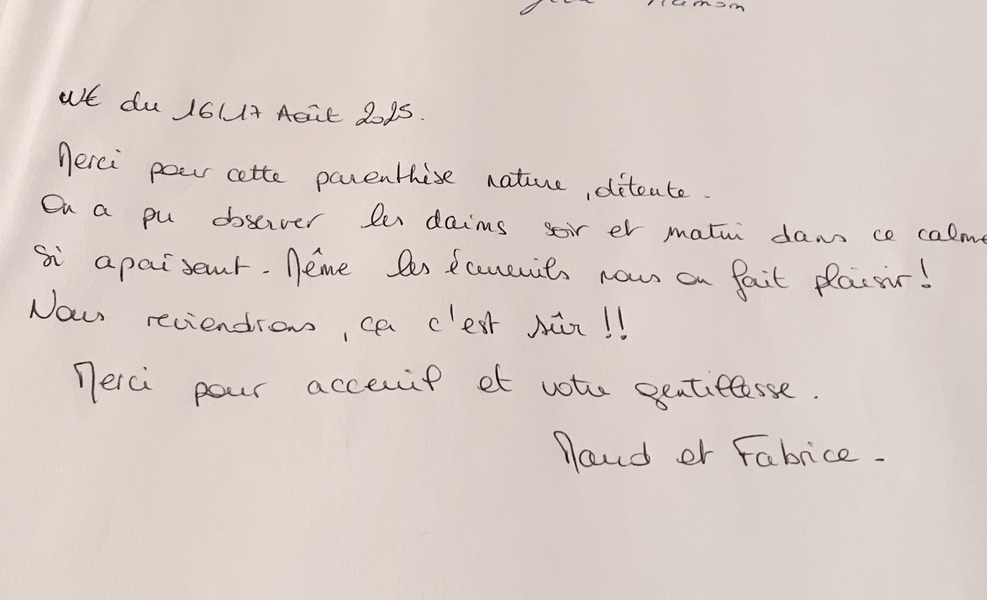 WE du 16/17 Août 2025.
Merci pour cette parenthèse nature, détente.
On a pu observer les daims soir et matin dans ce calme
si apaisant. Même les écureuils nous on fait plaisir !
Nous reviendrons, ça c'est sûr !!
Merci pour acceuil et votre gentillesse.
Maud et Fabrice.